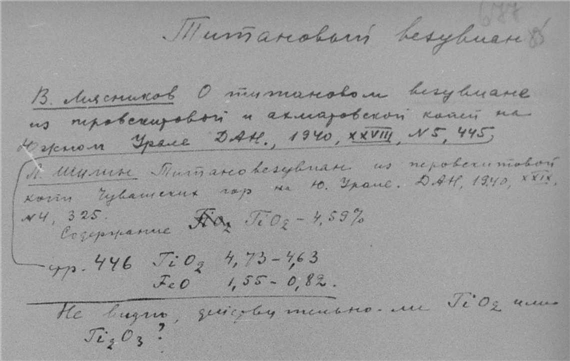 677
Титановый везувиан
В. Мясников О титановом везувиане
из перовскитовой и ахматовской копей на
Южном Урале ДАН., 1940, XXVIII, N5, 445,
П. Шилин Титановезувиан из перовскитовой
копи Чувашских гор на Ю. Урале. ДАН, 1940, XXIX,
N4, 325.
Содержание TiO2 – 4,59%
стр. 446 TiO2 4,73 – 4,63
FeO 1,55 – 0,82.
Не видно, действительно-ли TiO2 или
Ti2O3?